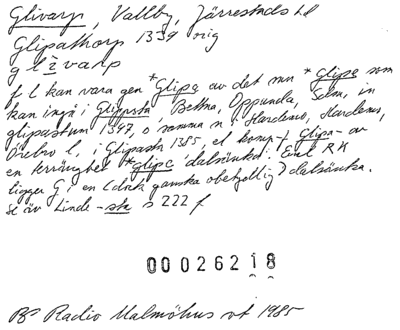 Glivarp, Vallby, Järrestads hd
Glipathorp 1334 orig
g l ī v a r p
f l kan vara gen *Glipa av det mn *Glipe som
kan ingå i Glippsta, Bettna, Oppunda, Sdm, in
glipastum 1347, o samma n i Hardemo, Hardemo,
Örebro l, i Glipasta 1385, el komp f Glipa- av
en terrängbet *glipa dalsänka. Enl RK
ligger G i en (dock ganska obetydlig) dalsänka.
Se äv Linde -sta s 222 f
00026218
BP Radio Malmöhus vt 1985